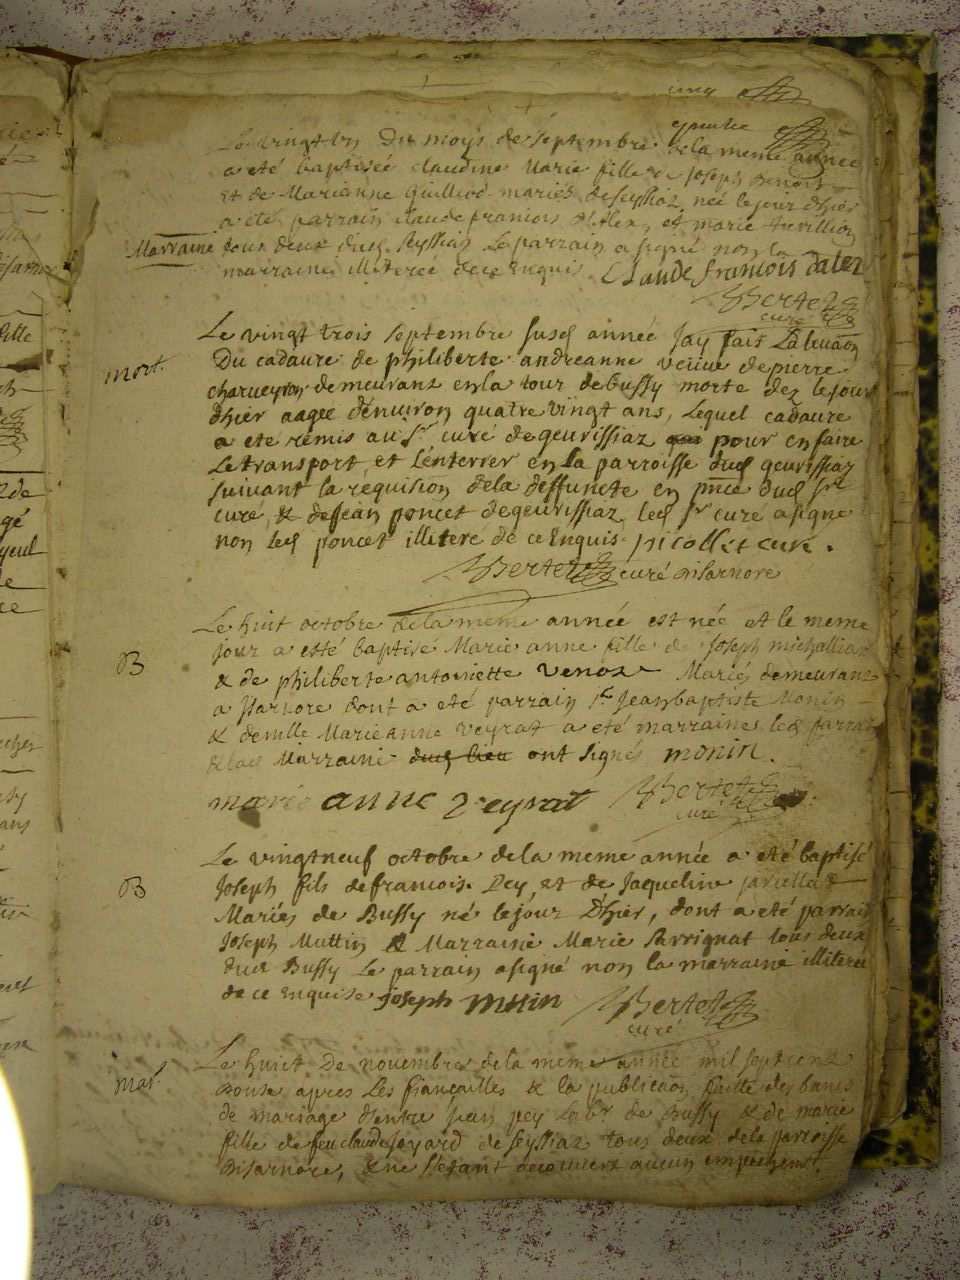 cinq
Le vingt un Du moys de septembre de la meme année
a été baptisée claudine Marie fille de Joseph Benoit
Et de Marianne Guilliod mariés de seyssiaz née le jour d'hier
a été parrain claude francois et marie
Marraine tous deux dud. seyssiaz Le parrain a signé non la
marraine illiterée de ce Enquis. Claude francois dalez
Bertet
curé
mort.
Le vingt trois septembre susd année Jay fait La leuaõn
Du cadaure de philiberte andreanne veuue de pierre
charueyron demeurant en la tour de bussy morte dez le jour
dhier aagee denuiron quatre vingt ans, Lequel cadaure
a eté remis au Sr curé de geurissiaz pour en faire
Le transport et Lenterrer en La parroisse dud geurissiaz
suivant la réquision dela deffuncte en pñce dud Sr
curé, & de Jean poncet de geurissiaz, led Sr curé a signé
non Led poncet illiteré de ce Enquis. picollet curé.
Bertet curé disarnore
B
Le huit octobre de la meme année est née et le meme
jour a esté baptisé Marie anne fille de Joseph michallian
& de philiberte antoinette venoz Mariés demeurant
a Isarnore dont a eté parrain sr Jean baptiste Monin
& demlle Marie anne veyrat a eté marraines led parrain
& lad Marraine dud lieu ont signés monin.
marie anne veyrat Bertet
curé
B
Le vingtneuf octobre de la meme année a eté baptisé
Joseph fils de francois Pey et de Jaqueline
Mariés de Bussy né le jour D'hier, dont a été parrain
Joseph Muttin & Marraine Marie Sarrignat tous deux
dud Bussy Le parrain a signé non la marraine illiteree
de ce enquise joseph muttin Bertet
curé
mar.
Le huict De novembre de la meme année mil sept cent
douse apres Les fiançailles & la publicaõn faitte des bancs
de mariage d'entre Jean pey Labr de Bussy & de marie
fille de feu claude Joyard de seyssiaz tous deux de la parroisse
disarnore, & ne s'étant decouuert aucun empechement